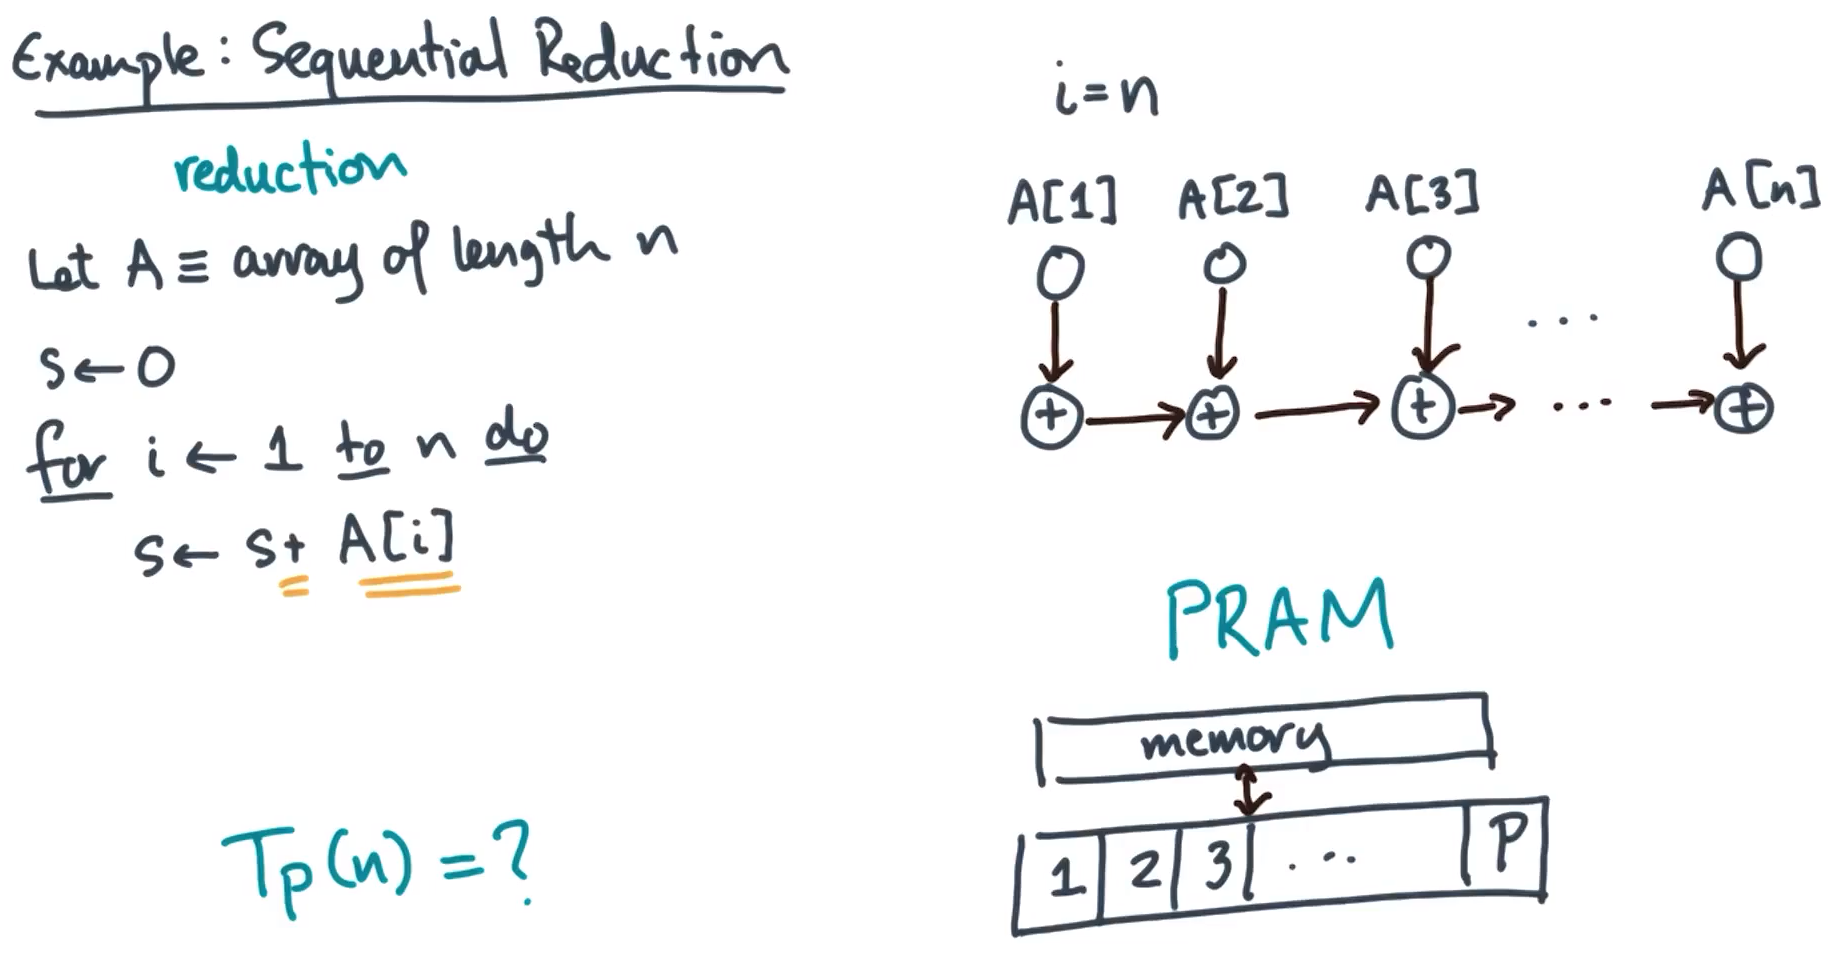 Example: Sequential Reduction
reduction
Let A ≡ array of length n
s ← 0
for i ← 1 to n do
s ← s + A[i]
T_P(n) = ?
i = n
A[1] A[2] A[3] ... A[n]
+ → + → + → ... → +
PRAM
memory
1 2 3 ... P